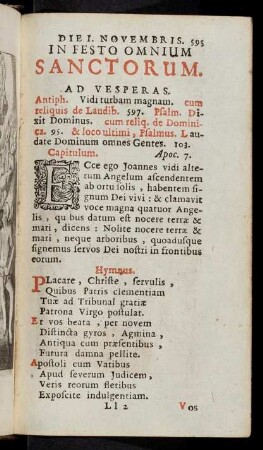 DIE I. NOVEMBRIS. 595
IN FESTO OMNIUM
SANCTORUM.
AD VESPERAS.
Antiph. Vidi turbam magnam. cum
reliquis de Laudib. 597. Psalm. Di-
xit Dominus. cum reliq. de Domini-
ca. 95. & loco ultimi, Psalmus. Lau-
date Dominum omnes Gentes. 103.
Capitulum. Apoc. 7.
ECce ego Joannes vidi alte-
rum Angelum ascendentem
ab ortu solis, habentem si-
gnum Dei vivi: & clamavit
voce magna quatuor Ange-
lis, quibus datum est nocere terræ &
mari, dicens: Nolite nocere terræ &
mari, neque arboribus, quoadusque
signemus servos Dei nostri in frontibus
eorum.
Hymnus.
PLacare, Christe, servulis,
Quibus Patris clementiam
Tuæ ad Tribunal gratiæ
Patrona Virgo postulat.
Et vos beata, per novem
Distincta gyros, Agmina,
Antiqua cum præsentibus,
Futura damna pellite.
Apostoli cum Vatibus
Apud severum Judicem,
Veris reorum fletibus
Exposcite indulgentiam.
Ll 2 Vos